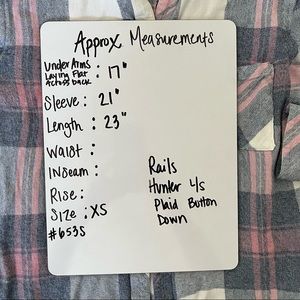 Approx Measurements
Under Arms
Laying Flat
Across back : 17"
Sleeve : 21"
Length : 23"
Waist :
Inseam :
Rise :
Size : XS
#6535
Rails
Hunter L/S
Plaid Button
Down